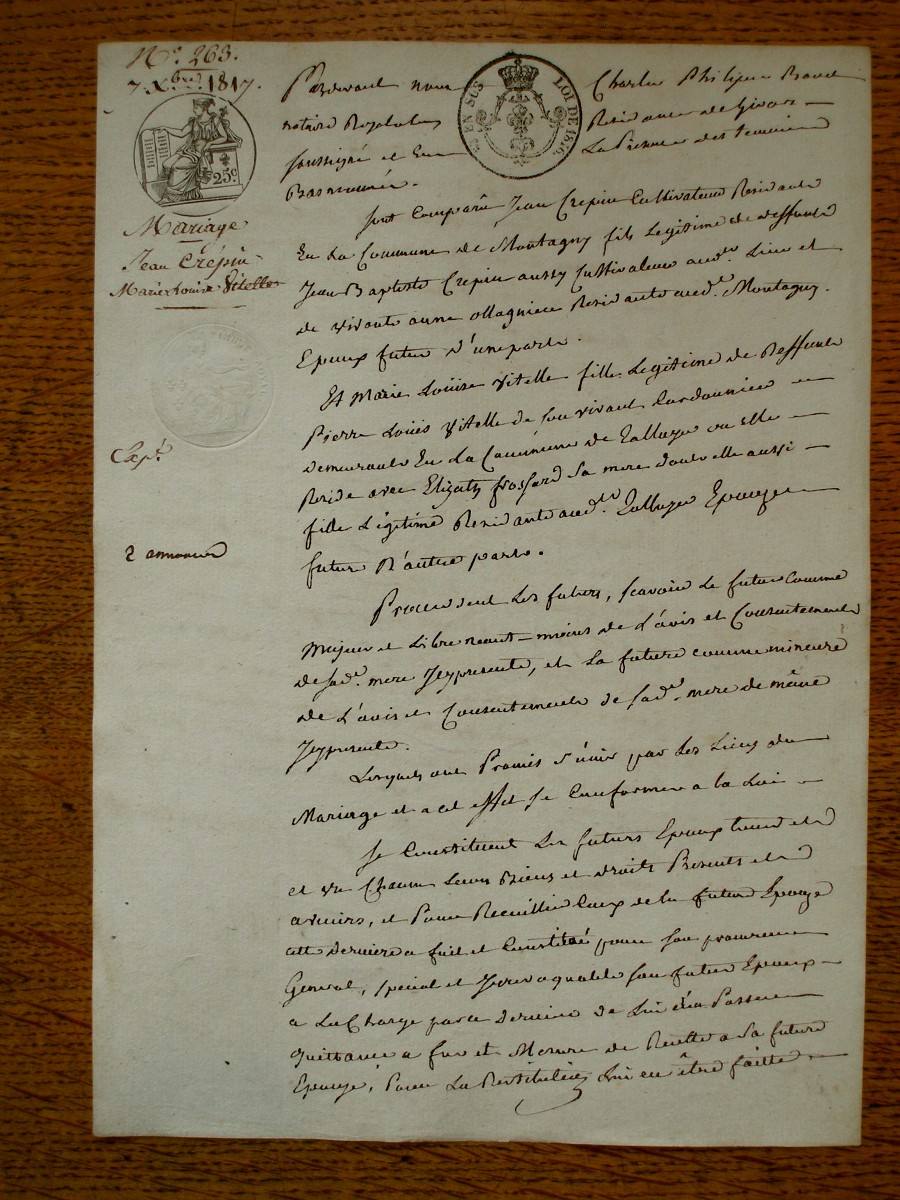 N.º 263.
7 X.bre 1817.
25 c
Mariage
Jean Crépin
Marie Louise Vitelle
Exp.é
2 annexes
EN SUS
LOI DE 1816.
Pardevant nous Charles Philippe
notaire Royal Residence de Givors
soussigné et En La Presence des temoins
Bas nommés.
sont Comparû Jean Crepin Cultivateur Residant
En La Commune de Montagny fils Legitime de deffunt
Jean Baptiste Crepin aussy Cultivateur aud.t Lieu et
de vivante anne ollagniere Residante aud.t Montagny.
Epoux futur d'une part.
Et Marie Loüise Vitelle fille Legitime de Deffunt
Pierre Loüis Vitelle de son vivant Cordonnier
demeurant En La Commune de Talluye ou Elle
Reside avec Elizabeth frossard sa mere dont elle aussi
fille Légitime Residante aud.t Talluye Epouze
futur D'autre part.
Procedent Les futurs, scavoir Le futur Comme
Majeur et Libre neant-moins de L'avis et Consentement
de sad.e mere Jcy presente, et La future comme mineure
de L'avis et Consentement de sad.e mere de même
Jcy presente.
Lesquels ont Promis s'unir par Les Liens du
Mariage et a cet effet se Conformer a la Loi
Se Constituent Les futurs Epoux
et un Chacun Leurs Biens et droits Presents et
avenirs, et Pour Recueillir Ceux de la future Epouze
cette Derniere a fait et Constitué pour son procureur
General, special et Jrrevoquable son futur Epoux
a La Charge par ce dernier de Lui En Passer
quittance a fur et Mesure de Recette a sa future
Epouze, Pour La Restitution Lui en être faitte